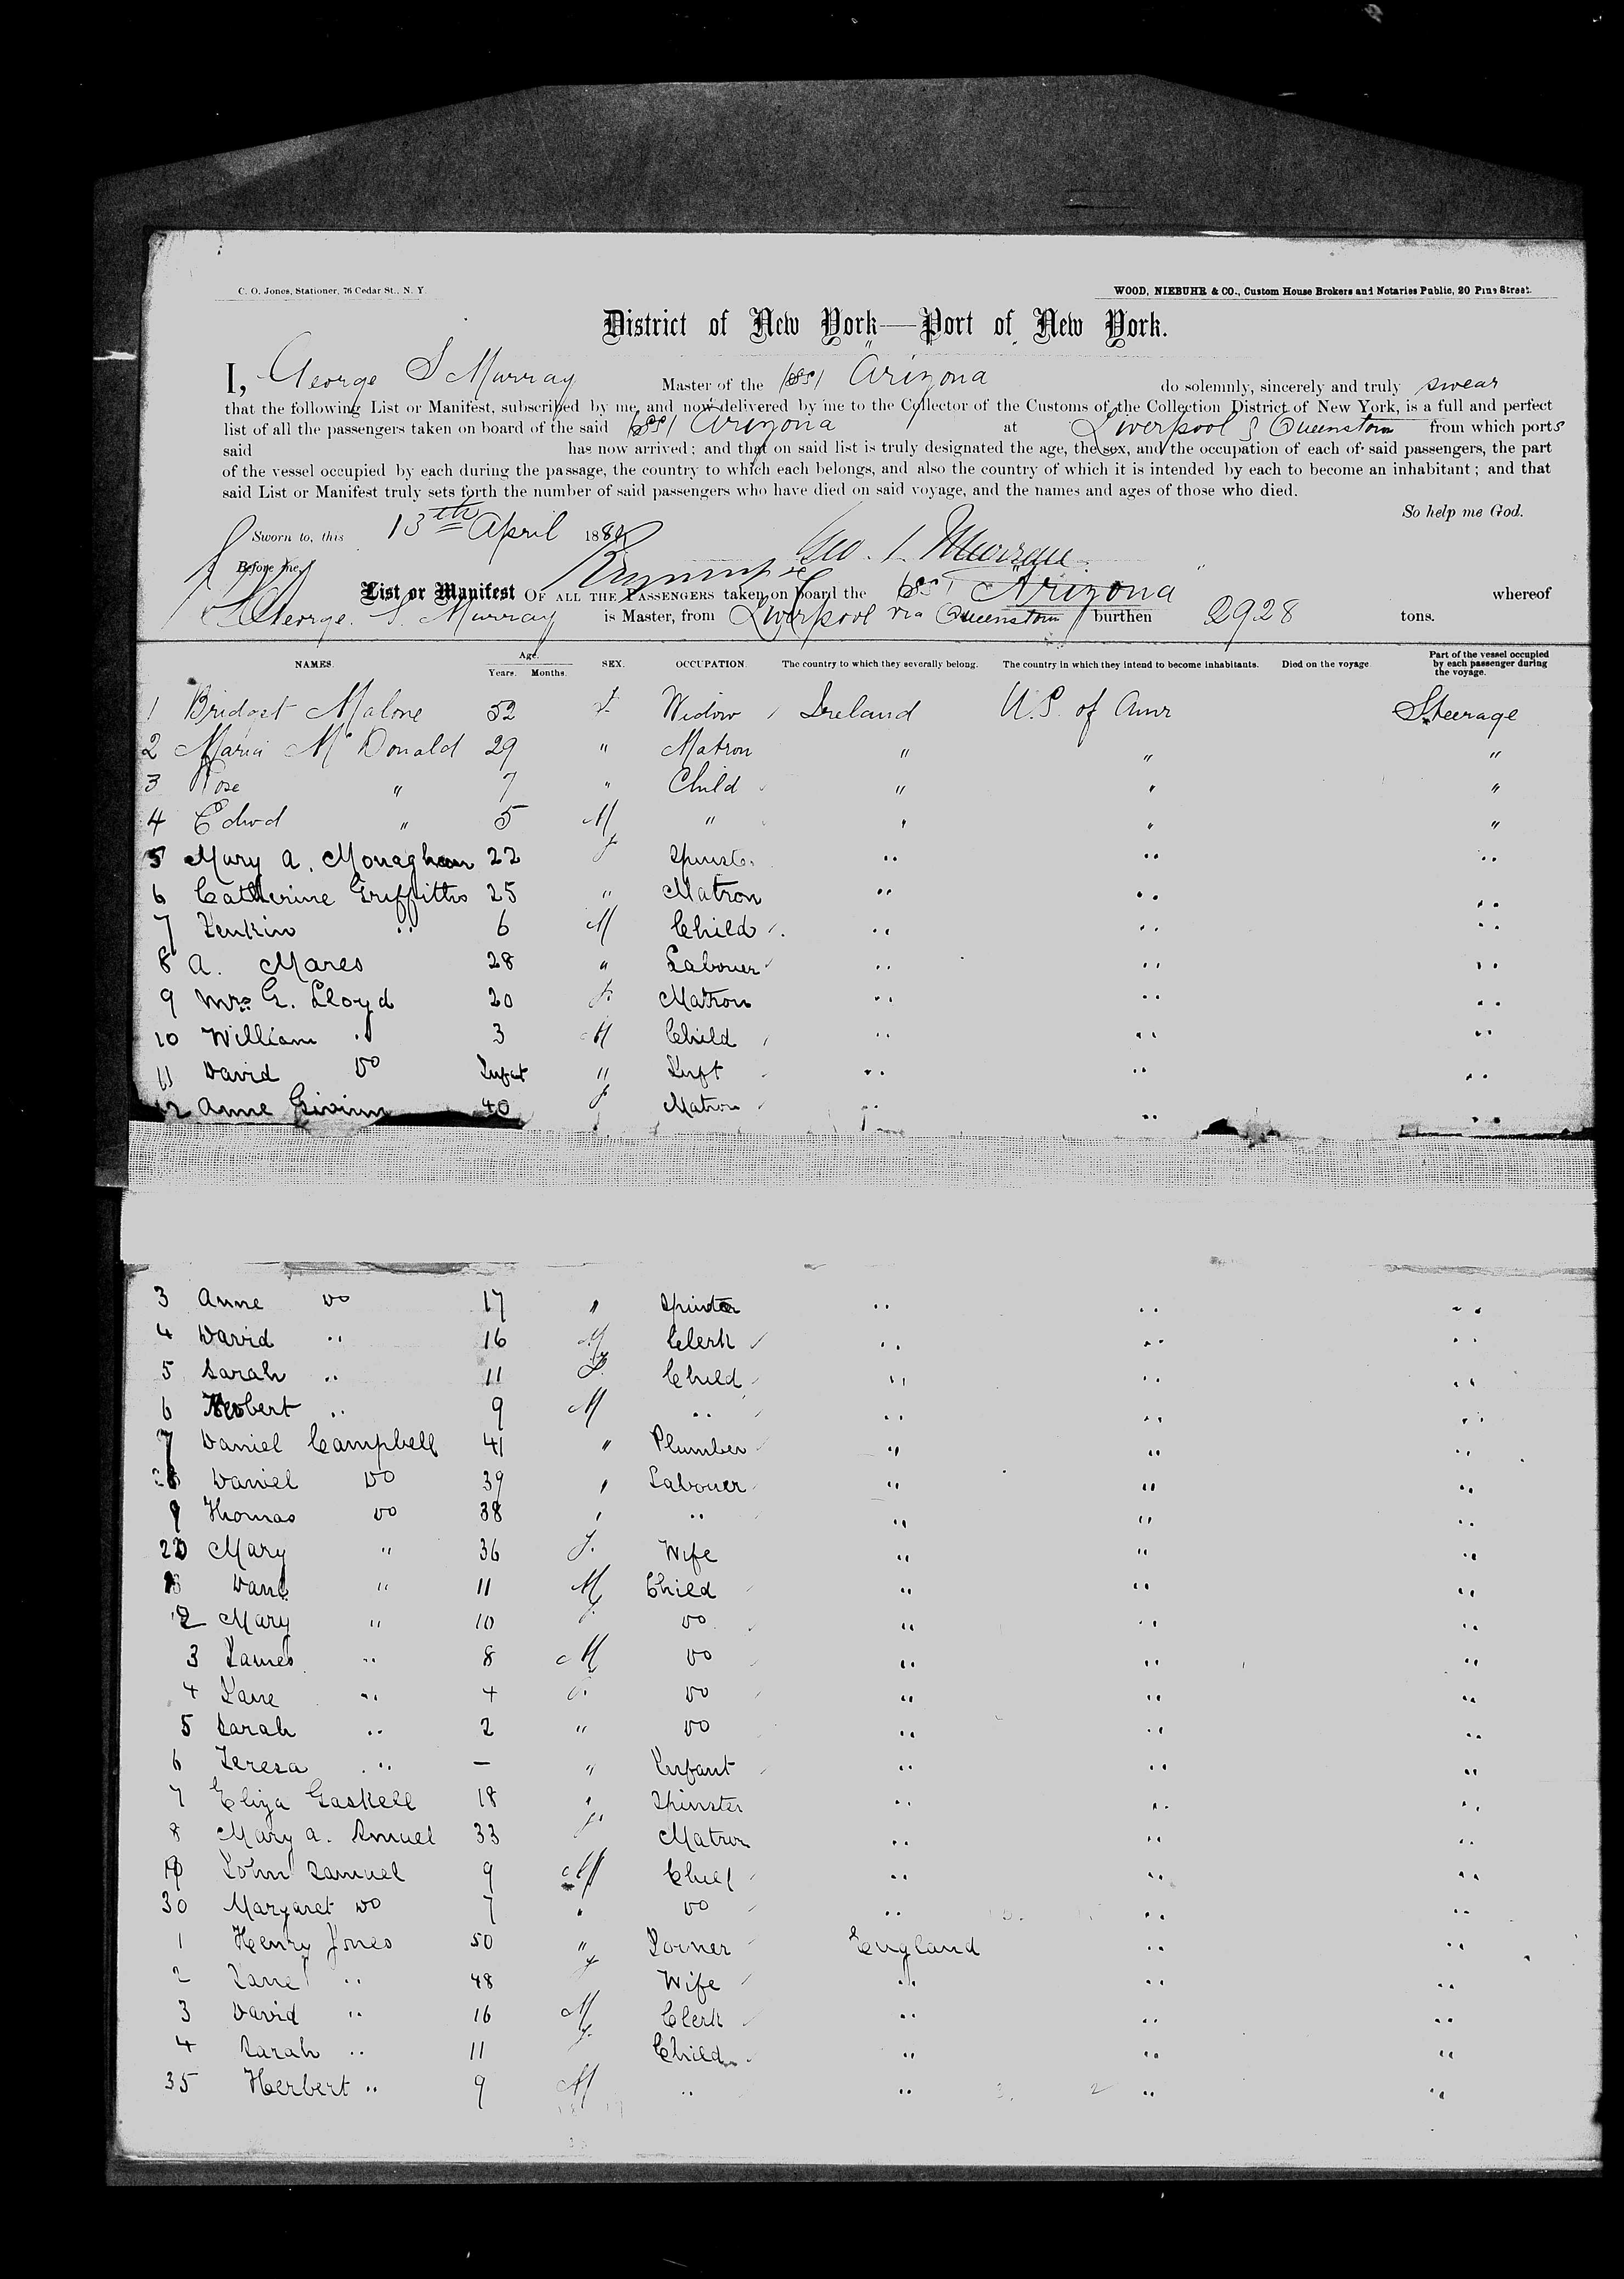 C. O. Jones, Stationer, 76 Cedar St., N. Y.
WOOD, NIEBUHR & CO., Custom House Brokers and Notaries Public, 20 Pine Street.
District of New York—Port of New York.
I, George S Murray Master of the SS Arizona do solemnly, sincerely and truly swear
that the following List or Manifest, subscribed by me, and now delivered by me to the Collector of the Customs of the Collection District of New York, is a full and perfect
list of all the passengers taken on board of the said SS Arizona at Liverpool & Queenstown from which ports
said has now arrived; and that on said list is truly designated the age, the sex, and the occupation of each of said passengers, the part
of the vessel occupied by each during the passage, the country to which each belongs, and also the country of which it is intended by each to become an inhabitant; and that
said List or Manifest truly sets forth the number of said passengers who have died on said voyage, and the names and ages of those who died.
So help me God.
Sworn to, this 13th April 188
Geo. S. Murray
Before me,
List or Manifest OF ALL THE PASSENGERS taken on board the SS Arizona whereof
George. S. Murray is Master, from Liverpool via Queenstown burthen 2928 tons.
NAMES. Age. Years. Months. SEX. OCCUPATION. The country to which they severally belong. The country in which they intend to become inhabitants. Died on the voyage. Part of the vessel occupied by each passenger during the voyage.
1 Bridget Malone 52 F. Widow Ireland U.S. of Amr Steerage
2 Maria McDonald 29 " Matron " " "
3 Rose " 7 " Child " " "
4 Edwd " 5 M " " " "
5 Mary A. Monaghan 22 F Spinster " " "
6 Catherine Griffiths 25 " Matron " " "
7 Jenkin " 6 M Child " " "
8 A. Mares 28 " Labourer " " "
9 Mrs G. Lloyd 20 F. Matron " " "
10 William " 3 M Child " " "
11 David Do Infat " Inft " " "
12 Anne 40 F Matron " " "
3 Anne Do 17 " Spinster " " "
4 David " 16 M Clerk " " "
5 Sarah " 11 F. Child " " "
6 Herbert " 9 M " " " "
7 Daniel Campbell 41 " Plumber " " "
8 Daniel Do 39 " Labouer " " "
9 Thomas Do 38 " " " " "
20 Mary " 36 F. Wife " " "
Danl " 11 M Child " " "
2 Mary " 10 F. Do " " "
3 James " 8 M Do " " "
4 Jane " 4 F. Do " " "
5 Sarah " 2 " Do " " "
6 Teresa " — " Infant " " "
7 Eliza Gaskell 18 " Spinster " " "
8 Mary A. Smuel 33 F Matron " " "
9 John Samuel 9 M Child " " "
30 Margaret Do 7 " Do " " "
1 Henry Jones 50 " Joiner England " "
2 Jane " 48 F Wife " " "
3 David " 16 M Clerk " " "
4 Sarah " 11 F. Child " " "
35 Herbert " 9 M " " " "